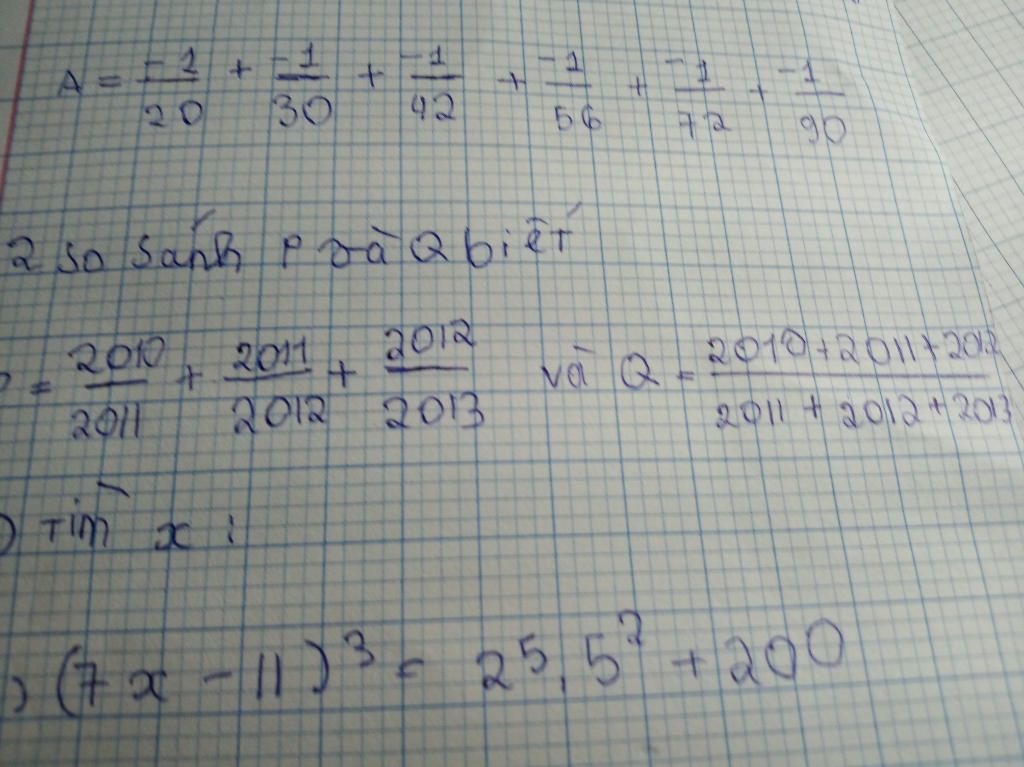 A = -1/20 + -1/30 + -1/42 + -1/56 + -1/72 + -1/90
2 so sánh P và Q biết
= 2010/2011 + 2011/2012 + 2012/2013 và Q = 2010+2011+2012/2011+2012+2013
) Tìm x :
) (7x - 11)³ = 2⁵.5² + 200